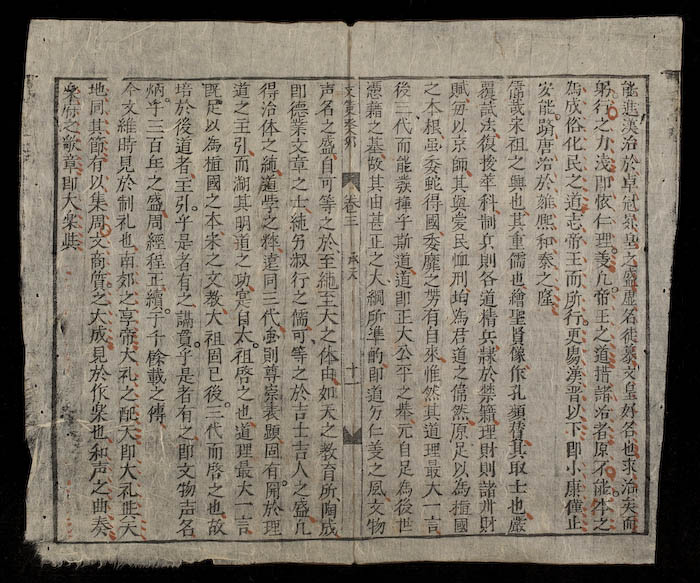 能進漢治於卓冠景皇之盛虛名徒慕文皇好名也求治矣而
躬行之力浅即依仁理義凡帝王之道措諸治者原不能本之
為成俗化民之道志帝王而所行更劣漢晋以下即小康僅止
安能躋唐治於雍熙和泰之隆
儒哉宋祖之興也其重儒也繪聖賢像作孔顔賛其取士也嚴
覆試法復拔萃科制兵則各道精兵隷於禁籍理財則諸州財
賦毎以京師其與愛民恤刑均為君道之偹然原足以為植國
之本根虽委蛇得國委靡之势有自來惟然其道理最大一言
後三代而能發揮乎斯道道即正大公平之基元自足為後世
憑藉之基故其由甚正之大綱所準的即道仁義之風文物
文策 卷三 承天 十一
声名之盛自可等之於至純至大之体由如天之教育所陶成
即德業文章之士純淑行之儒可等之於吉士吉人之盛凡
得治体之純道學之粹遠同三代虽則尊崇表顕固有開於理
道之王引而湖其明道之功寔自太祖啓之也道理最大一言
既足以為植國之本宋之文教大祖固已後三代而啓之也故
培於後道者王引乎是者有之講貫乎是者有之即文物声名
炳乎三百年之盛周經程正續乎千餘載之傳
今文維時見於制礼也南郊之享帝大礼之配天即大礼與天
地同其節有以集周文商質之大成見於作樂也和声之曲奏
樂府之歌章即大樂與